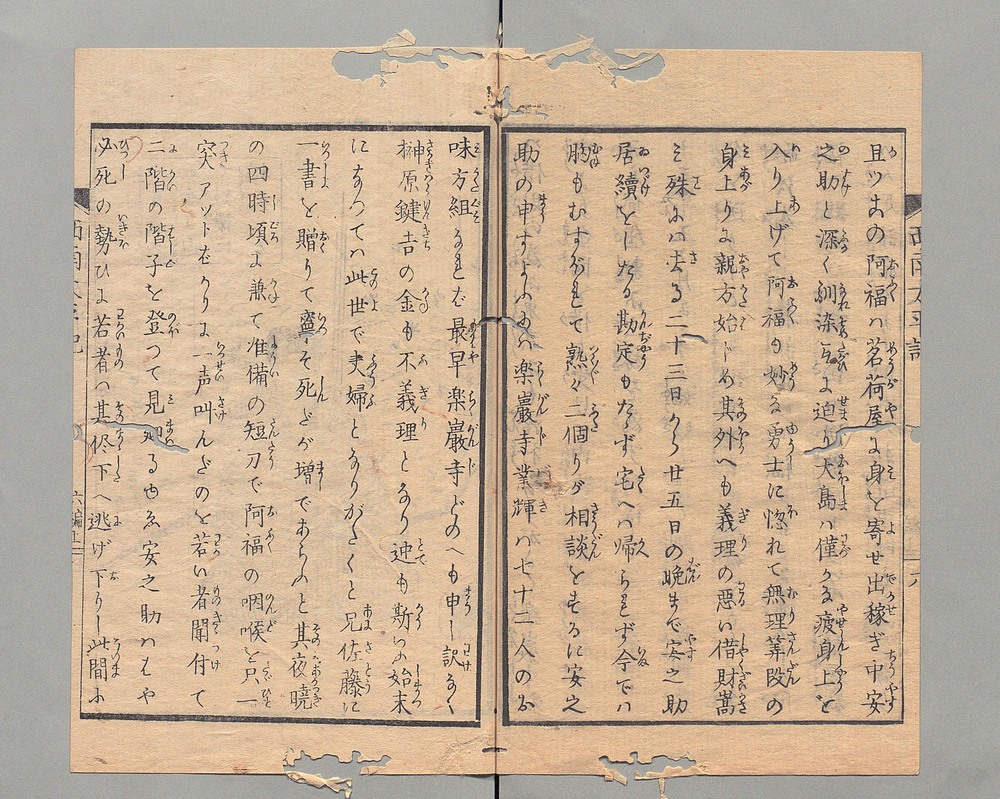 且ツおの阿福ハ茗荷屋に身を寄せ出稼ぎ中安
之助と深く馴染互に迫り大島ハ僅かる疲身上を
入り上げて阿福も妙な勇士に惚れて無理算段の
身上りに親方始じめ其外へも義理の悪い借財嵩
み殊にハ去る二十三日から廿五日の晩まで安之助
居續をしたる勘定もたらず宅へハ帰られず今でハ
胸もむすぼれて熟々二個りが相談をするに安之
助の申すよふハ楽巖寺業輝ハ七十二人のお
味方組なれば最早楽巖寺どのへも申し訳なく
榊原鍵吉の金も不義理となり迚も斯いふ始末
になつてハ此世で夫婦となりがたくと兄佐藤に
一書を贈りて寧そ死だが増であらふと其夜暁
の四時頃に兼て准備の短刀で阿福の咽喉を只一
突アツトばかりに一声叫んだのを若い者聞付て
二階の階子を登つて見廻るゆゑ安之助ハもはや
必死の勢ひに若者ハ其侭下へ逃げ下りし此間に
西南太平記
六
六編上